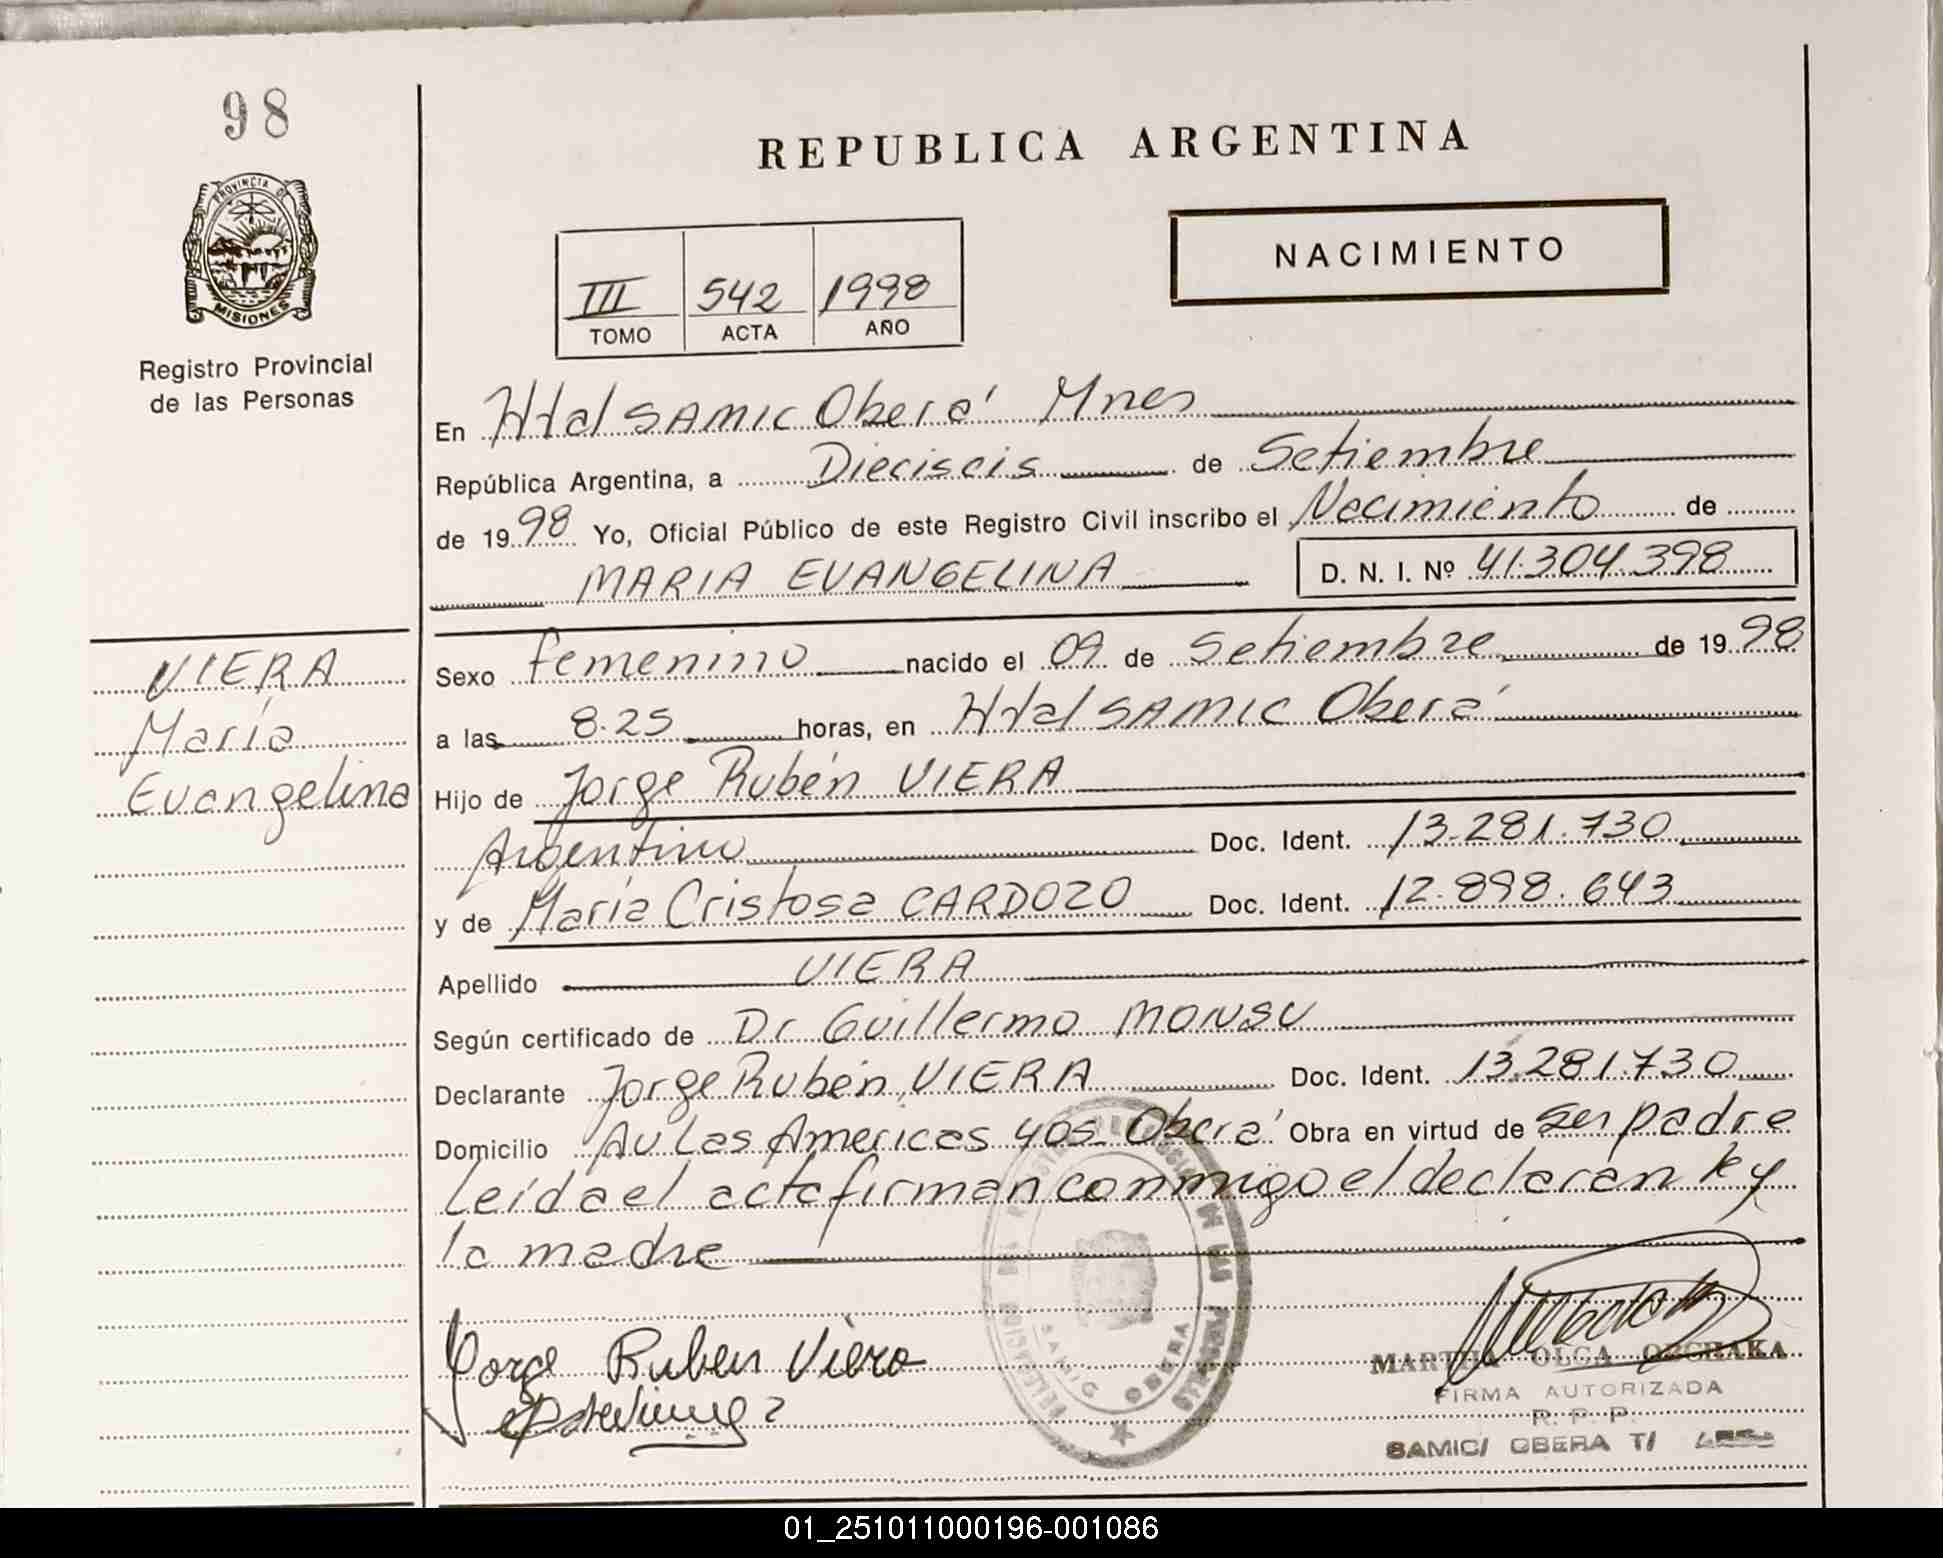 98
PROVINCIA DE
MISIONES
Registro Provincial
de las Personas
REPUBLICA ARGENTINA
NACIMIENTO
III 542 1998
TOMO ACTA AÑO
En Htal SAMIC Oberá Mnes
República Argentina, a Dieciseis de Setiembre
de 1998 Yo, Oficial Público de este Registro Civil inscribo el Nacimiento de
MARIA EVANGELINA D. N. I. Nº 41.304.398
VIERA
María
Evangelina
Sexo femenino nacido el 09 de Setiembre de 1998
a las 8.25 horas, en Htal SAMIC Oberá
Hijo de Jorge Rubén VIERA
Argentino Doc. Ident. 13.281.730
y de María Cristosa CARDOZO Doc. Ident. 12.898.643
Apellido VIERA
Según certificado de Dr Guillermo MONSU
Declarante Jorge Rubén VIERA Doc. Ident. 13.281.730
Domicilio Av Las Americas 405 Oberá Obra en virtud de ser padre
Leída el acta firman conmigo el declarante y
la madre
Jorge Ruben Viera
MARTHA OLGA
FIRMA AUTORIZADA
R. P. P.
SAMIC/ OBERA T/
SAMIC OBERA
01_251011000196-001086